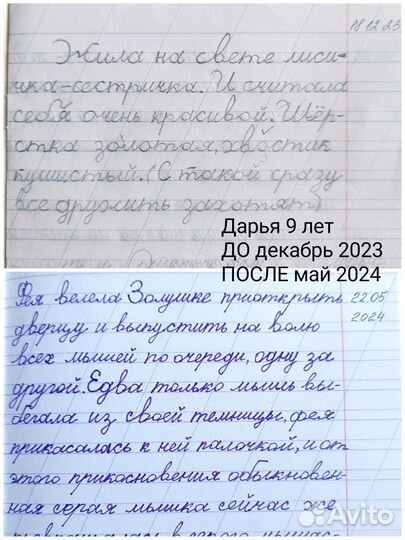 18 12 23
Жила на свете лиси-
чка-сестричка. И считала
себя очень красивой. Шёр-
стка золотая, хвостик
пушистый. (С такой сразу
все дружить захотят)
Дарья 9 лет
ДО декабрь 2023
ПОСЛЕ май 2024
Фея велела Золушке приоткрыть 22.05
дверцу и выпустить на волю 2024
всех мышей по очереди, одну за
другой. Едва только мышь вы-
бегала из своей темницы, фея
прикасалась к ней палочкой, и от
этого прикосновения обыкновен-
ная серая мышка сейчас же
Avito